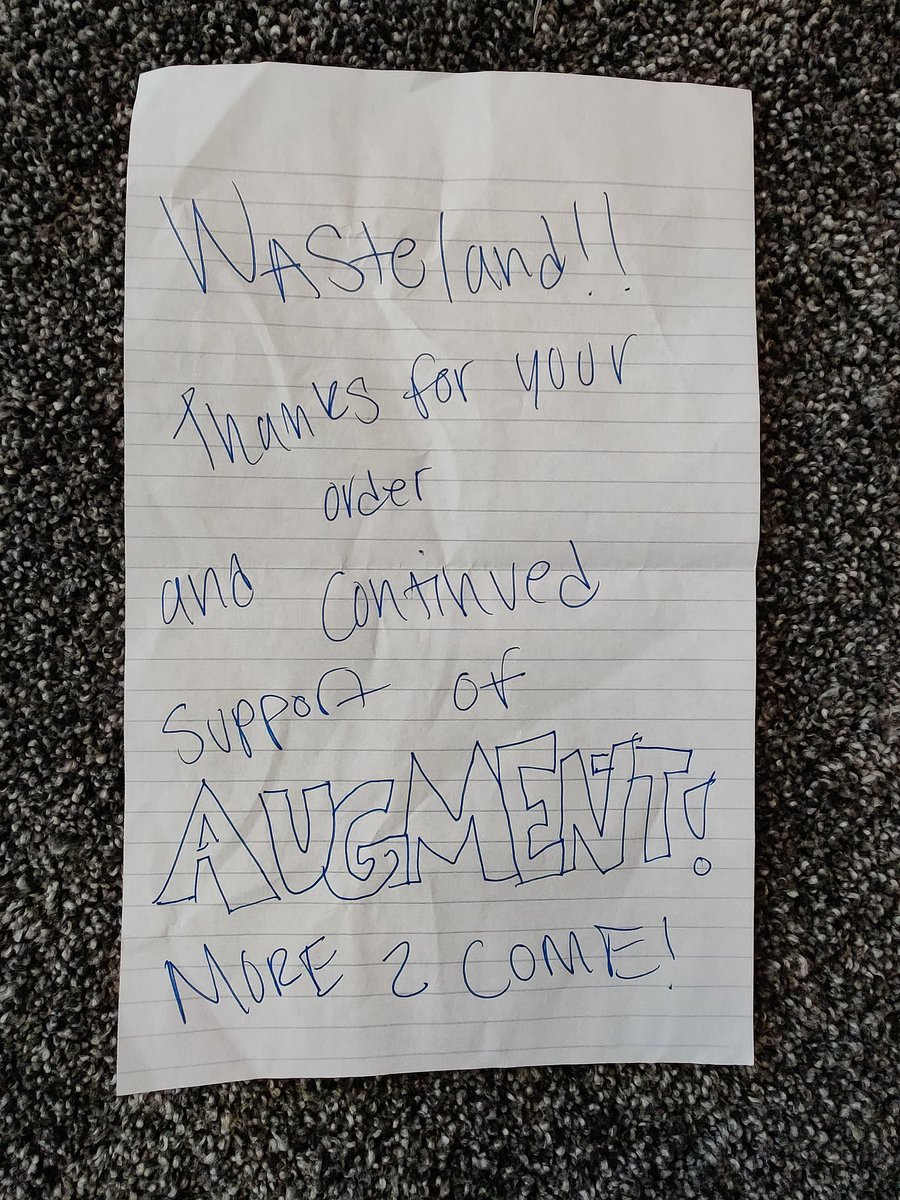 WAsteland!!
Thanks for your
order
and continued
support of
AUGMENT!
MORE 2 COME!